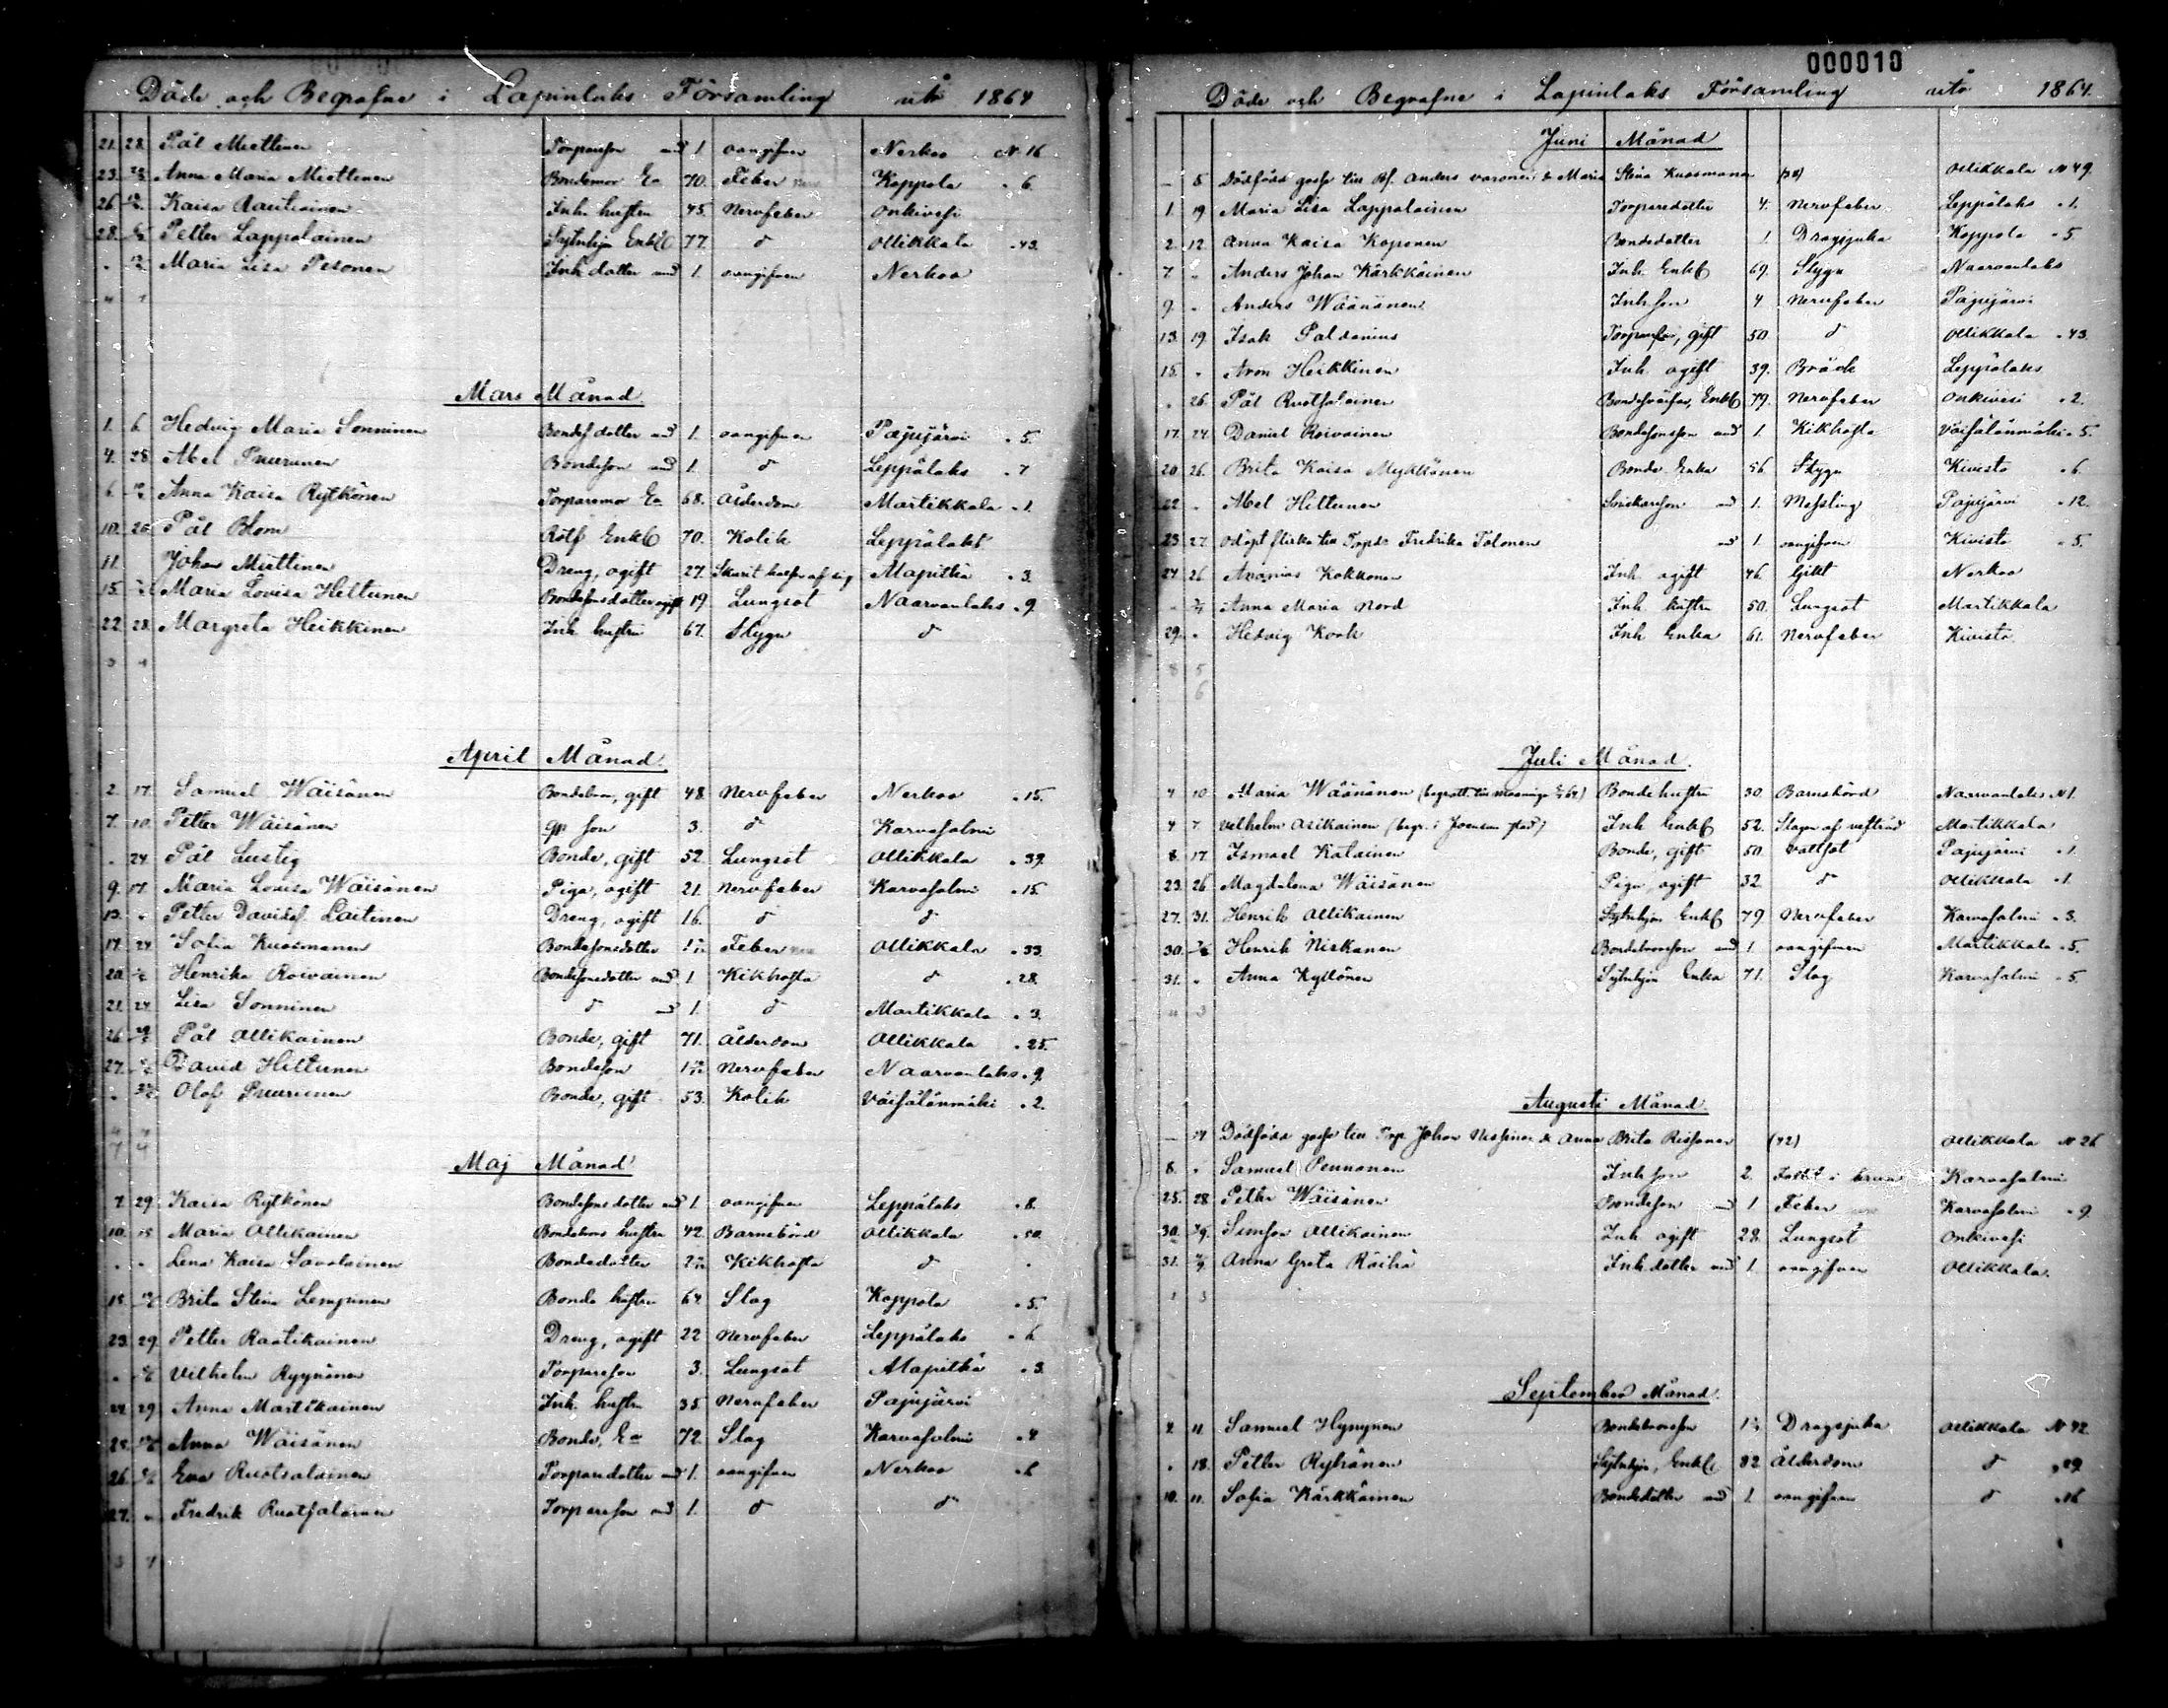 Döde och Begrafne i Lapinlaks Församling utå 1864
21. 28. Pål Miettinen Torpareson und 1. oangifven Nerkoo N 16
23. Anna Maria Miettinen Bondemor Ea 70. Feber Koppola " 6.
26. Kaisa Rautiainen Inh. hustru 45. Nervfeber Onkivesi
28. Petter Lappalainen Sytnhjon Enkl 77. d Ollikkala " 43.
" Maria Lisa Pesonen Inh dotter und 1. oangifven Nerkoo
Mars Månad.
1. 6. Hedvig Maria Sonninen Bondes dotter und 1. oangifven Pajujärvi " 5.
4. 28. Abel Puurunen Bondeson und 1. d Leppälaks " 7
6. Anna Kaisa Rytkönen Torparemor Ea 68. Ålderdom Martikkala " 1.
10. 20. Pål Blom Rotf Enkl 70. Kolik Leppälaks
11. Johan Miettinen Dreng, ogift 27. Skurit halsen af sig Mapitkä " 3.
15. Maria Lovisa Hiltunen Bondesonsdotter ogift 19 Lungsot Naarvanlaks " 9.
22. 28. Margreta Heikkinen Inh hustru 67. Stygn d
April Månad.
2. 17. Samuel Wäisänen Bondebror, gift 48. Nervfeber Nerkoo " 15.
7. 10. Petter Wäisänen son 3. d Karvasalmi
" 24. Pål Lustig Bonde, gift 52. Lungsot Ollikkala " 39.
9. 17. Maria Lovisa Wäisänen Piga, ogift 21. Nervfeber Karvasalmi " 15.
13. " Petter Davidsf. Laitinen Dreng, ogift 16. d d
17. 24. Sofia Kuosmanen Bondesonsdotter Feber Ollikkala " 33.
20. Henrika Roivainen Bondesonsdotter und 1 Kikhosta d " 28.
21. 24. Lisa Sonninen d und 1. d Martikkala " 3.
26. Pål Ollikainen Bonde, gift 71. Ålderdom Ollikkala " 25.
27. David Hiltunen Bondeson Nervfeber Naarvanlaks " 9.
" Olof Puurunen Bonde, gift 53. Kolik Väisälänmäki " 2.
Maj Månad
7. 29. Kaisa Rytkönen Bondesons dotter und 1. oangifven Leppälaks " 8.
10. 15 Maria Ollikainen Bondebrors hustru 42. Barnsbörd Ollikkala " 50.
" " Lena Kaisa Savolainen Bondedotter Kikhosta d "
15. Brita Stina Lempinen Bonde hustru 64. Slag Koppola " 5.
23. 29. Petter Raatikainen Dreng, ogift 22 Nervfeber Leppälaks " 6.
" Vilhelm Ryynänen Torpareson 3. Lungsot Mapitkä " 3.
24. 29 Anna Martikainen Inh. hustru 35. Nervfeber Pajujärvi
25. Anna Wäisänen Bonde, Ea 72. Slag Karvasalmi " 4
26. Eva Ruotsalainen Torparedotter und 1. oangifven Nerkoo " 6
27. " Fredrik Ruotsalainen Torpareson und 1. d d
000010
Döde och Begrafne i Lapinlaks Församling utå 1864.
Juni Månad
— 5. Dödfödd gosse till Bf. Anders Varonen & Maria Stina Kuosmanen (38) Ollikkala N 49.
1. 19 Maria Lisa Lappalainen Torparedotter 4. Nervfeber Leppälaks " 1.
2. 12. Anna Kaisa Koponen Bondedotter 1. Dragsjuka Koppola " 5.
7. " Anders Johan Kärkkäinen Inh. Enkl 69. Stygn Naarvanlaks
9. " Anders Wäänänen Inh son 4 Nervfeber Pajujärvi
13. 19. Isak Paldanius Torpare, gift 50. d Ollikkala " 43.
15. " Aron Heikkinen Inh. ogift 39. Bräck Leppälaks
" 26. Pål Ruotsalainen Enkl 79. Nervfeber Onkivesi " 2.
17. 24 Daniel Roivainen Bondesonsson und 1. Kikhosta Väisälänmäki " 5.
20. 26. Brita Kaisa Mykkänen Bonde Enka 56. Stygn Kivistö " 6.
22 " Abel Hiltunen und 1. Messling Pajujärvi " 12.
23. 27. Odöpt flicka till Fredrika Tolonen und 1. oangifven Kivistö " 5.
24. 26. Ananias Kokkonen Inh. ogift 46. Gikt Nerkoo
" Anna Maria Nord Inh. hustru 50. Lungsot Martikkala
29. " Hedvig Kook Inh Enka 61. Nervfeber Kivistö.
Juli Månad.
4 10 Maria Wäänänen Bonde hustru 30. Barnsbörd Naarvanlaks N 1.
4. 7. Vilhelm Asikainen (begr. i Joensuu stad) Inh Enkl 52. Slagen af Martikkala
8. 17. Ismael Katainen Bonde, gift 50. Vattsot Pajujärvi " 1.
23. 26 Magdalena Wäisänen Piga ogift 32. d Ollikkala " 1.
27. 31. Henrik Ollikainen Sytnhjon Enkl 79. Nervfeber Karvasalmi " 3.
30. Henrik Niskanen Bondebrorsson und 1. oangifven Martikkala " 5.
31. " Anna Kyllönen Sytnhjon Enka 71. Slag Karvasalmi " 5.
Augusti Månad.
— 14 Dödfödd gosse till Torp. Johan Nissinen & Anna Brita Rissanen (42) Ollikkala N 26
8. " Samuel Pennanen Inh son 2. Fallit i brun Karvasalmi
25. 28. Petter Wäisänen Bondeson und 1 Feber Karvasalmi " 9.
30. Simson Ollikainen Inh ogift 28. Lungsot Onkivesi
31. Anna Greta Räihä Inh. dotter und 1. oangifven Ollikkala.
September Månad.
4. 11. Samuel Hynynen Bondebrorsson Dragsjuka Ollikkala N 42.
" 18. Petter Ryhänen Sytnhjon, Enkl 82 Ålderdom d " 29.
10. 11. Sofia Kärkkäinen Bondedotter und 1. oangifven d " 16